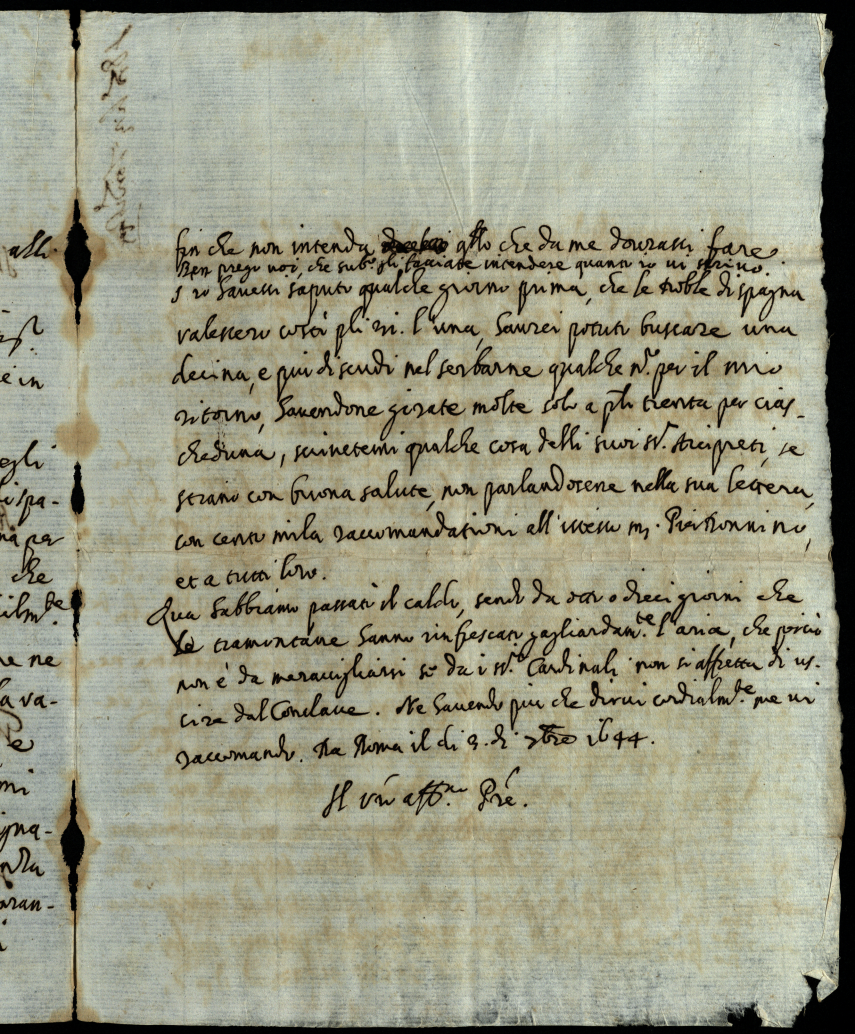 alli
e in
egli
ispa-
na per
che
ilm.te
ne ne
la va-
e
mi
gna-
aran-
fin che non intenda q.llo che da me dourassi fare
Ben prego uoi, che sub.o gli facciate intendere quanto io ui scriuo.
S'io hauessi saputo qualche giorno prima, che le doble di spagna
ualessero costì pli . l'una, haurei potuto buscare una
decina, e più di scudi nel serbarne qualche n.o per il mio
ritorno, hauendone girate molte solo a pli trenta per cias-
cheduna, scriuetemi qualche cosa delli suoi ss.ri Arcipreti, se
strano con buona salute, non parlandosene nella sua lettera,
con cento mila raccomandationi all'istesso m.
et a tutti loro.
Qua habbiamo passati il caldo, sendo da otto o dieci giorni che
le tramontane hanno rinfrescato gagliardam.te l'aria, che perciò
non è da merauigliarsi se da i ss.ri Cardinali non si affretta di us-
cire dal Conclaue. Ne hauendo più che dirui cordialm.te me ui
raccomando. Da Roma il di 3. di 7bre 1644.
Il vro aff.mo Pre.